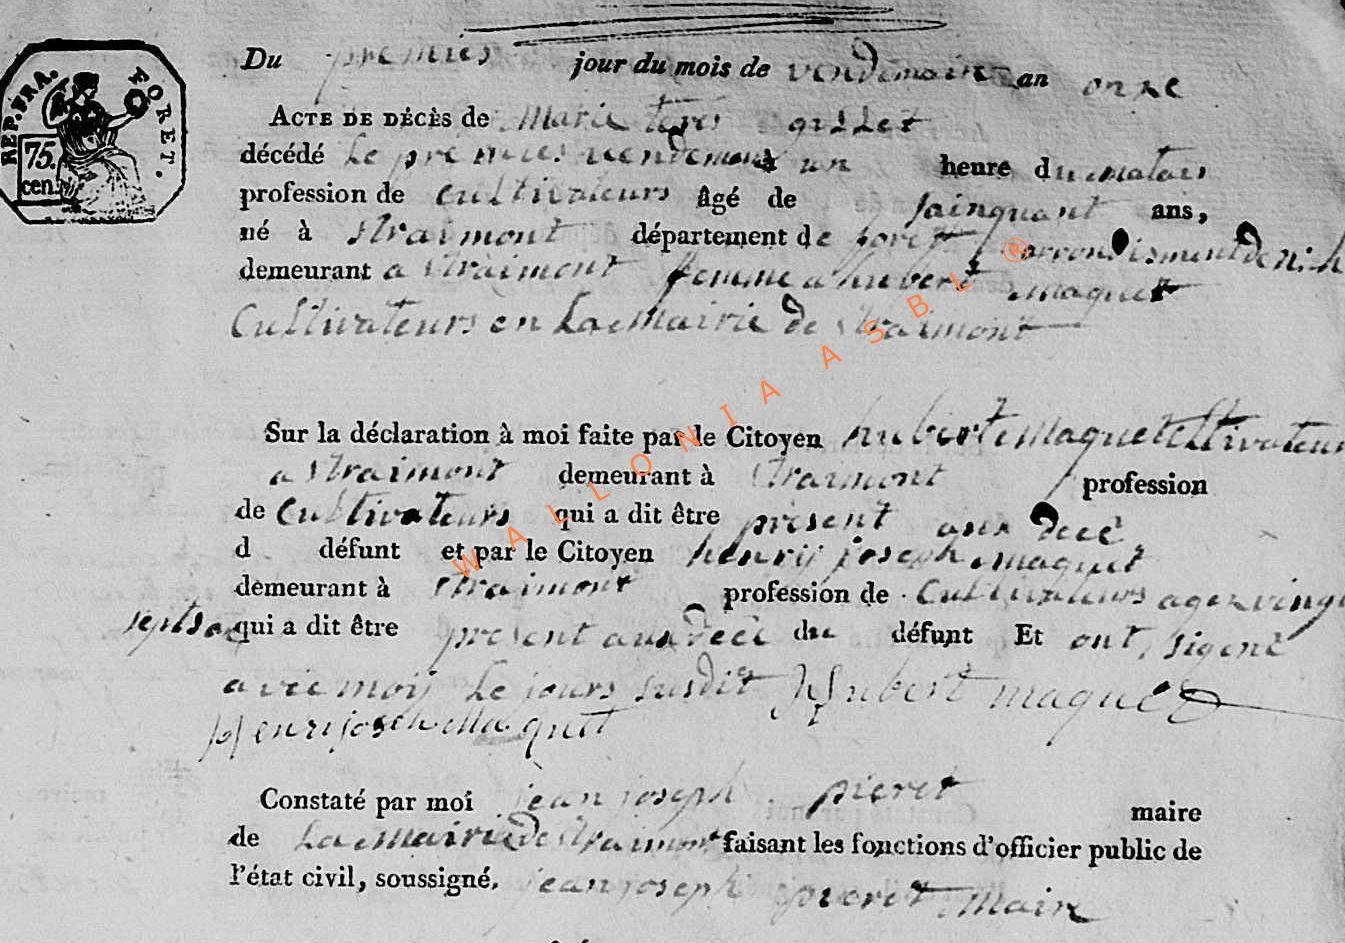 REP. FRA. FORET.
75.
cen.
Du premier jour du mois de vendemaire an onze
ACTE DE DÉCÈS de Marie teres gillet
décédé le premier vendemair à un heure du matan
profession de cultivateurs âgé de sainquant ans,
né à straimont département de foret arrondisment de
demeurant a straimont femme a hubert maquet
Cultivateurs en La mairie de straimont
Sur la déclaration à moi faite par le Citoyen hubert maquet
a straimont demeurant à straimont profession
de Cultivateurs qui a dit être present aux decè
d défunt et par le Citoyen henry joseph maquet
demeurant à straimont profession de Cultivateurs agez vingt
sept qui a dit être present aux decè du défunt Et ont sigenè
avec moy Le jours susdit Hubert maquet
Henri josehh Maquet
Constaté par moi jean joseph pieret maire
de La mairie de straimont faisant les fonctions d'officier public de
l'état civil, soussigné. jean joseph pieret Maire
WALLONIA ASBL ®